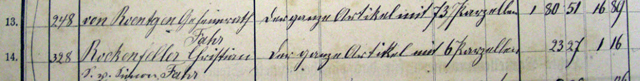 13. 248 von Roentgen Geheimrath Der ganze Artikel mit 73 Parzellen 1 80 51 16 84
Fahr
14. 328 Rockenfeller Christian Der ganze Artikel mit 6 Parzellen 23 27 1 16
Fahr